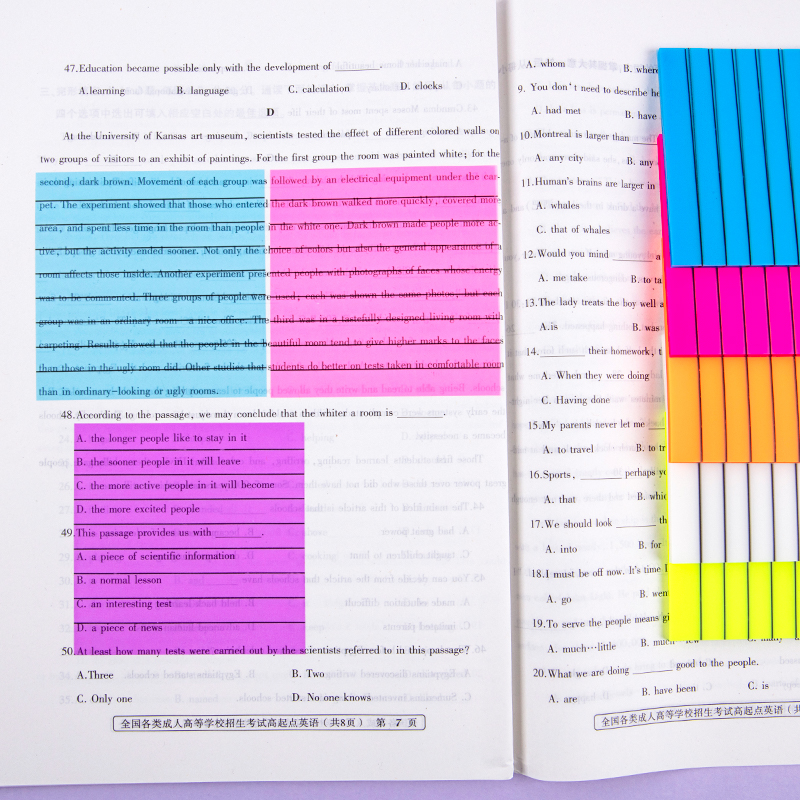 47.Education became possible only with the development of ______.
A.learning B. language C. calculation D. clocks
D
At the University of Kansas art museum, scientists tested the effect of different colored walls on
two groups of visitors to an exhibit of paintings. For the first group the room was painted white; for the
second, dark brown. Movement of each group was followed by an electrical equipment under the car-
pet. The experiment showed that those who entered the dark brown walked more quickly, covered more
area, and spent less time in the room than people in the white one. Dark brown made people more ac-
tive, but the activity ended sooner. Not only the choice of colors but also the general appearance of a
room affects those inside. Another experiment presented people with photographs of faces whose energy
was to be commented. Three groups of people were used; each was shown the same photos, but each
group was in an ordinary room—a nice office. The third was in a tastefully designed living room with
carpeting. Results showed that the people in the beautiful room tend to give higher marks to the faces
than those in the ugly room did. Other studies that students do better on tests taken in comfortable room
than in ordinary-looking or ugly rooms.
48.According to the passage, we may conclude that the whiter a room is ______.
A. the longer people like to stay in it
B. the sooner people in it will leave
C. the more active people in it will become
D. the more excited people
49.This passage provides us with ______.
A. a piece of scientific information
B. a normal lesson
C. an interesting test
D. a piece of news
50.At least how many tests were carried out by the scientists referred to in this passage?
A.Three B. Two
C. Only one D. No one knows
全国各类成人高等学校招生考试高起点英语(共8页) 第 7 页
A. whom B. where
9. You don't need to describe he
A. had met B. have
10.Montreal is larger than ______
A. any city B. any
11.Human's brains are larger in
A. whales
C. that of whales
12.Would you mind ______ a
A. me take B. to ta
13.The lady treats the boy well a
A.is B. was
14.______ their homework, t
A. When they were doing
C. Having done
15.My parents never let me ______
A. to travel B. to tr
16.Sports, ______ perhaps yo
A. that B. whic
17.We should look ______ th
A. into B. for
18.I must be off now. It's time I
A. go B. wen
19.To serve the people means gi
A. much…little B. much few
20.What we are doing ______ good to the people.
A. are B. have been C. is
全国各类成人高等学校招生考试高起点英语(共